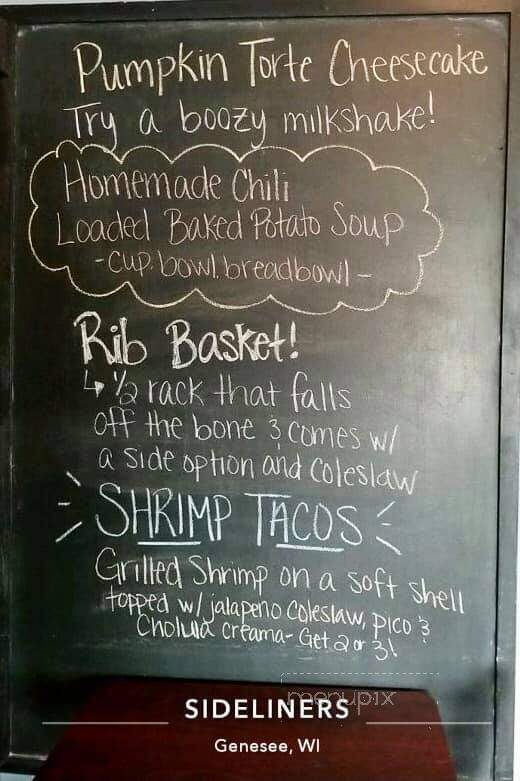 Pumpkin Torte Cheesecake
Try a boozy milkshake!
Homemade Chili
Loaded Baked Potato Soup
- cup. bowl. breadbowl -
Rib Basket!
↳ 1/2 rack that falls
off the bone & comes w/
a side option and coleslaw
SHRIMP TACOS
Grilled Shrimp on a soft shell
topped w/ jalapeno coleslaw, pico &
Cholula creama - Get 2 or 3!
menupix
SIDELINERS
Genesee, WI